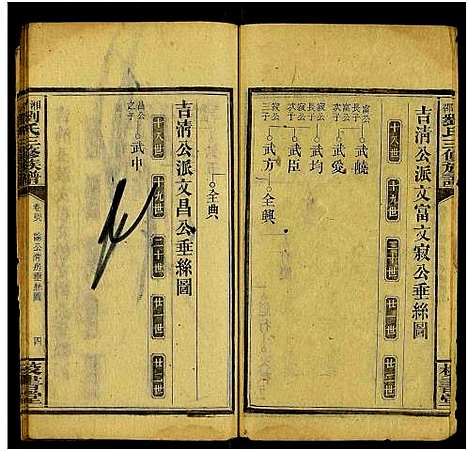 吉清公派文富文寂公垂絲圖
十八世 十九世 二十世 廿一世 廿二世
富公
長子
武毓
次子
武愛
寂公
長子
武均
次子
武臣
寂公
三子
武方
全興
吉清公派文昌公垂絲圖
十八世 十九世 二十世 廿一世 廿二世
昌公
之子
武中
全典
劉氏三修族譜
四